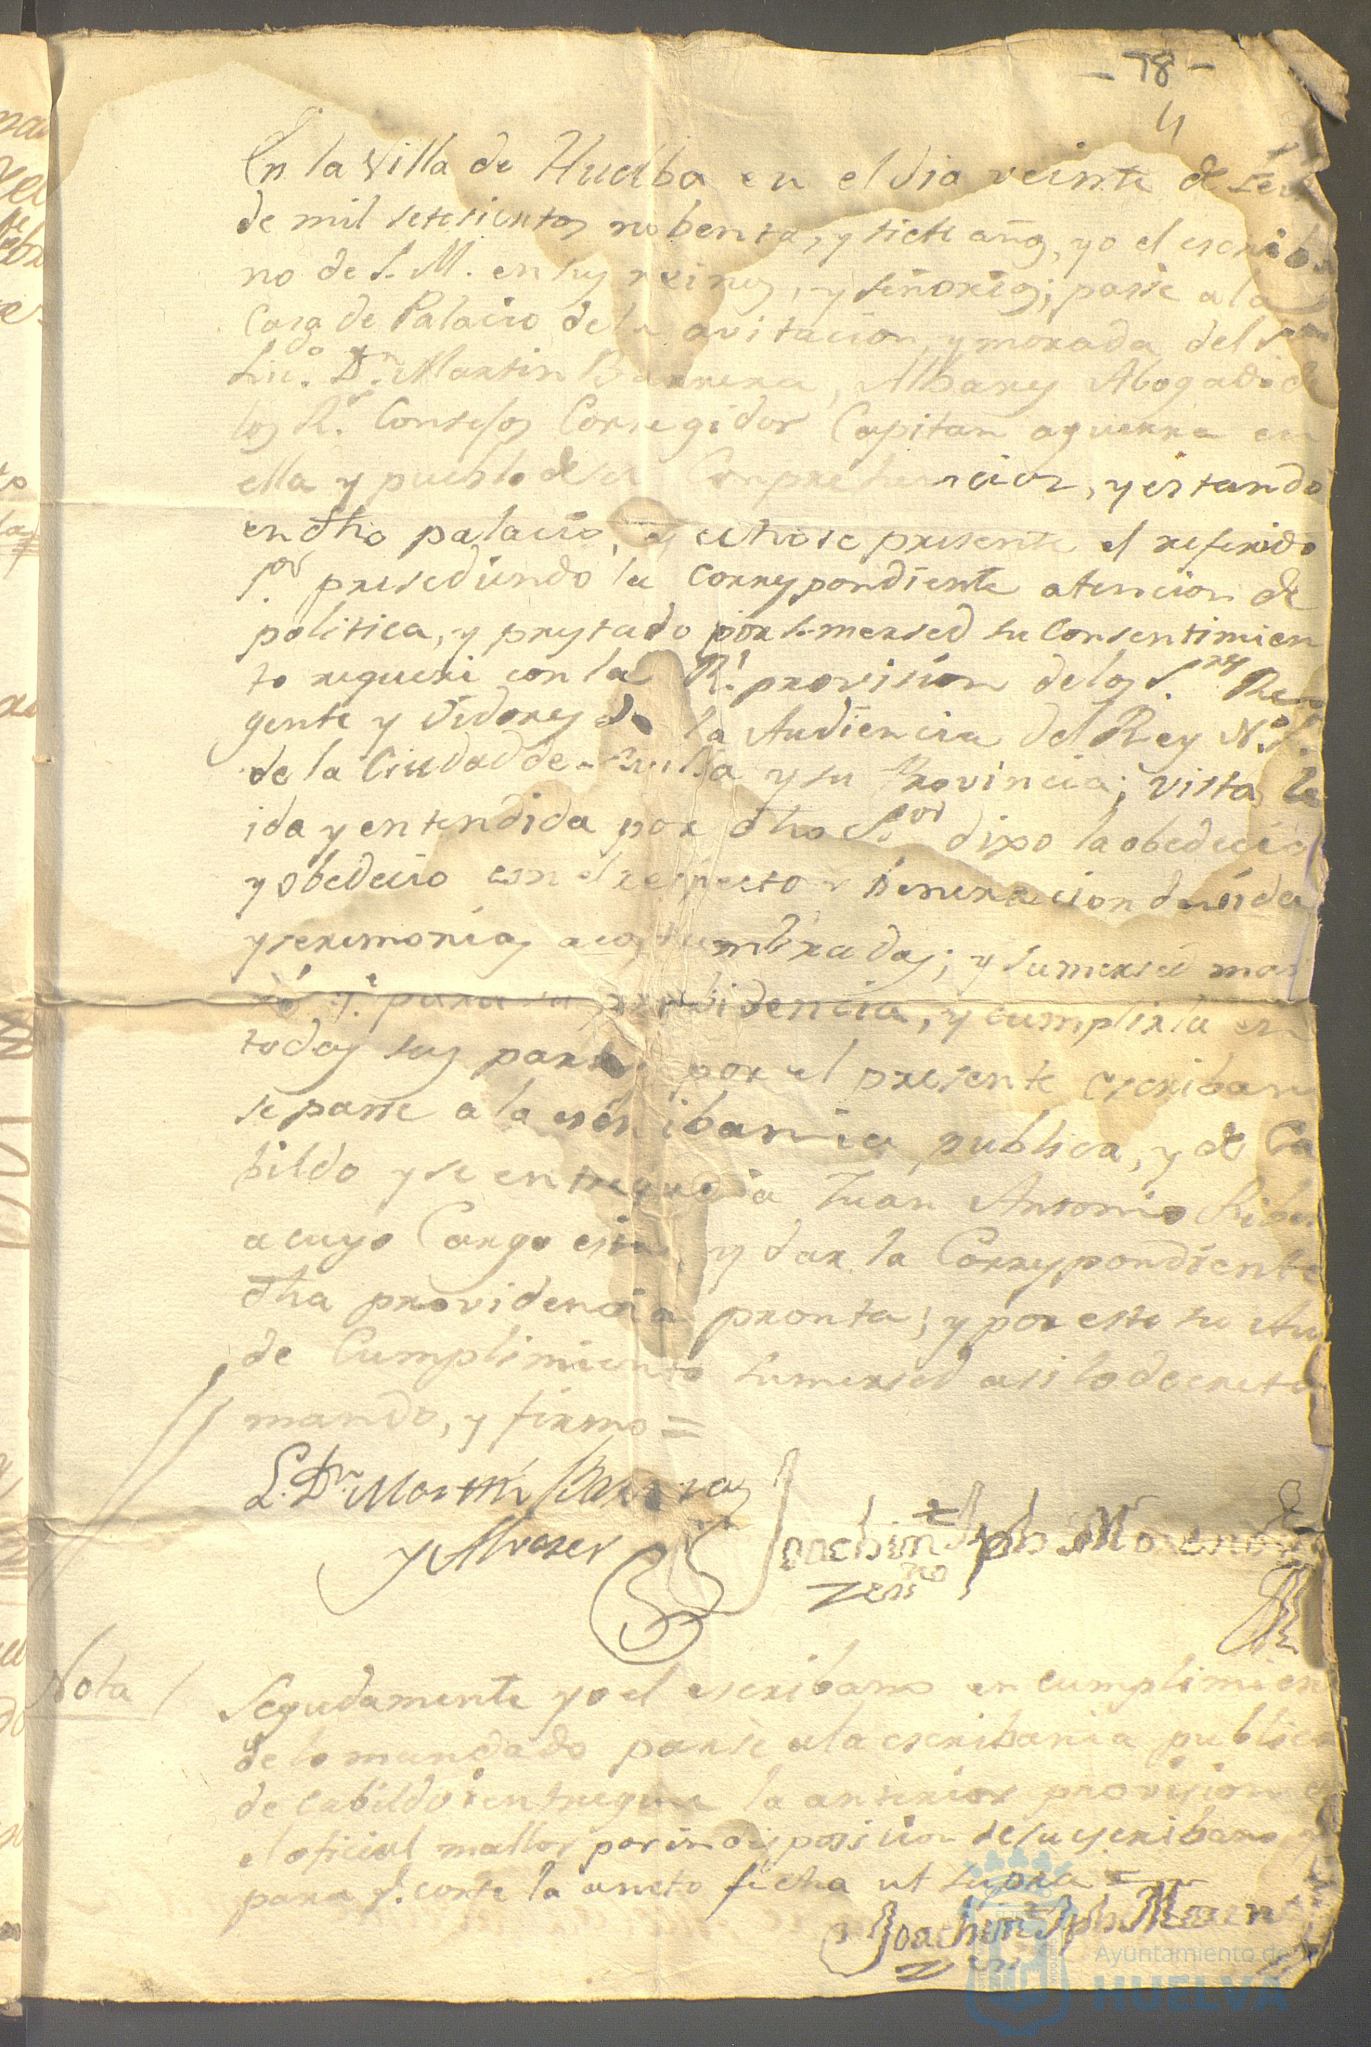 - 78 -
4
En la Villa de Huelba en el dia veinte de
de mil setesientos nobenta, y siete años, yo el escriba
no de S. M. en sus reinos, y señorios; passe a la
Casa de Palacio de la avitacion, y morada del Sor
Lic.o Dn. Martin Barrera, Albares Abogado de
los Rs. Consejos Corregidor Capitan aguerra en
ella y pueblo de su Conprehencion, y estando
en dho palacio, echose presente el referido
Sor. presediendo la correspondiente atencion de
politica, y prestado por su mersed su Consentimien
to requeri con la Rl. provision de los Sres Re
gente y Oidores de la Audiencia del Rey N. S.
de la Ciudad de Sevilla y su Provincia; vista le
ida y entendida por dho Sor dixo la obedecia
y obedecio con el respecto y beneracion devida
y seremonias acostumbradas; y su mersed man
do q.e para su probidencia, y cumplirla en
todas sus partes por el presente escribano
se passe a la escribania publica, y de Ca
bildo y se entregue a Juan Antonio
a cuyo Cargo esta, y dar la Correspondiente
dha providencia pronta; y por este su Au
de Cumplimiento su mersed asi lo decreto
mando, y firmo =
L. Dn. Martin Barrera
y Alvarez
Joachin Jph Moreno
Nota /
Segudamente yo el escribano en cumplimien
de lo mandado passe a la escribania publica
de cabildo i entregue la anterior provision
el oficial mallor por indisposicion de su escribano
para q. conste la anoto fecha ut supra =
Joachin Jph Moren
Ayuntamiento de
HUELVA